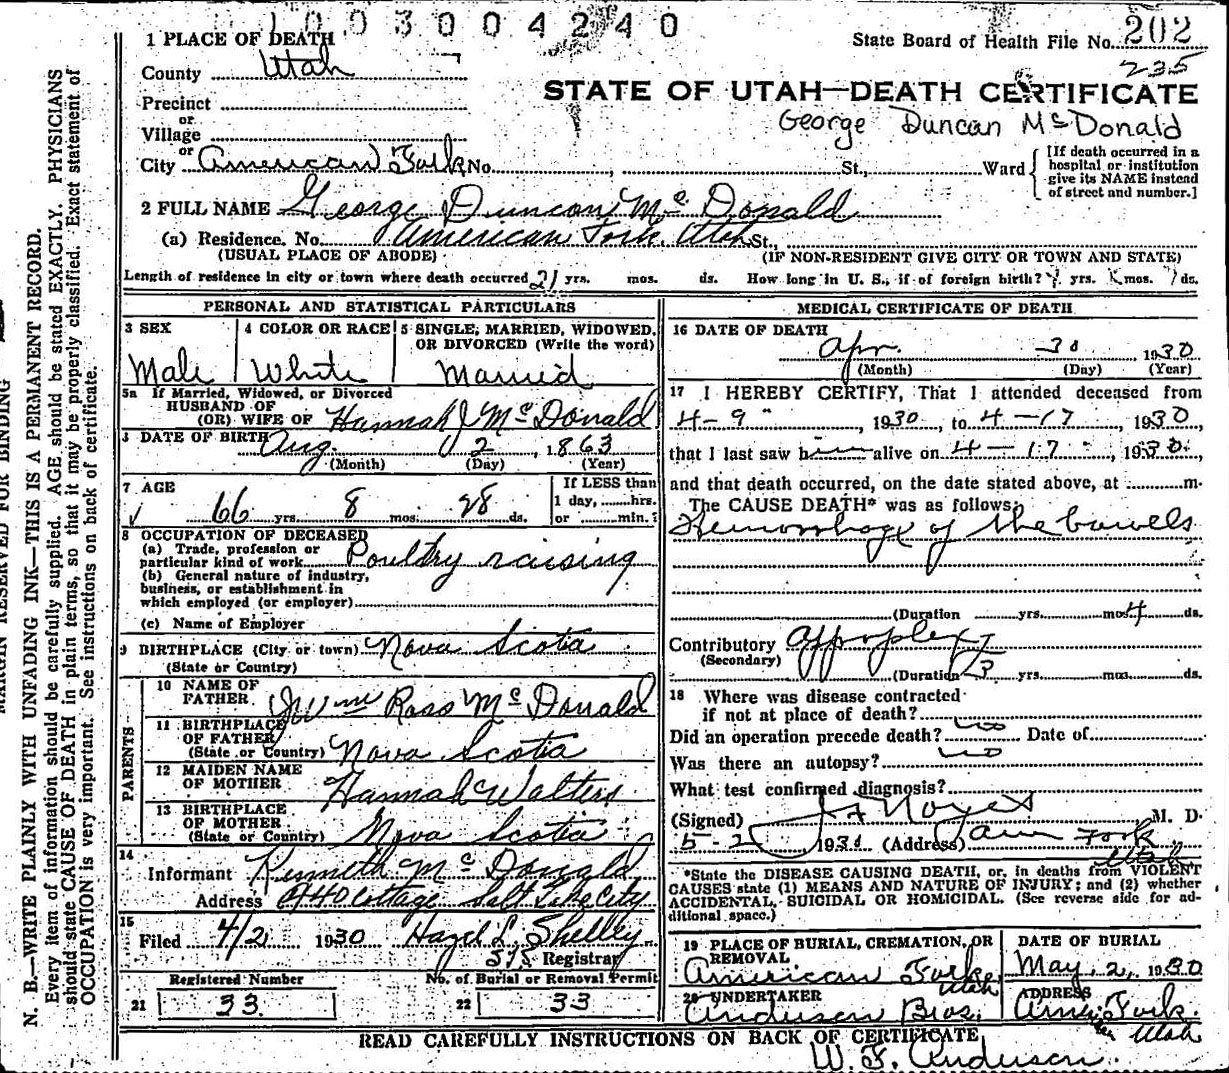 1003004240
State Board of Health File No. 202
235
1 PLACE OF DEATH
County Utah
Precinct
or
Village
or
City American Fork No. St., Ward
[If death occurred in a hospital or institution give its NAME instead of street and number.]
STATE OF UTAH—DEATH CERTIFICATE
George Duncan McDonald
2 FULL NAME George Duncan Mc Donald
(a) Residence. No. American Fork. Utah St.,
(USUAL PLACE OF ABODE) (IF NON-RESIDENT GIVE CITY OR TOWN AND STATE)
Length of residence in city or town where death occurred 21 yrs. mos. ds. How long in U. S., if of foreign birth? yrs. mos. ds.
PERSONAL AND STATISTICAL PARTICULARS
3 SEX
Male
4 COLOR OR RACE
White
5 SINGLE, MARRIED, WIDOWED, OR DIVORCED (Write the word)
Married
5a If Married, Widowed, or Divorced
HUSBAND OF
(OR) WIFE OF Hannah J Mc Donald
DATE OF BIRTH Aug. 2, 1863
(Month) (Day) (Year)
7 AGE
66 yrs. 8 mos. 28 ds.
If LESS than
1 day, hrs.
or min.?
8 OCCUPATION OF DECEASED
(a) Trade, profession or
particular kind of work Poultry raising
(b) General nature of industry,
business, or establishment in
which employed (or employer)
(c) Name of Employer
9 BIRTHPLACE (City or town) Nova Scotia
(State or Country)
PARENTS
10 NAME OF
FATHER Wm Ross Mc Donald
11 BIRTHPLACE
OF FATHER
(State or Country) Nova Scotia
12 MAIDEN NAME
OF MOTHER Hannah Walters
13 BIRTHPLACE
OF MOTHER
(State or Country) Nova Scotia
14
Informant Kenneth Mc Donald
Address 440 Cottage Salt Lake City
15
Filed 4/2 1930 Hazel L. Shelley
Registrar
Registered Number No. of Burial or Removal Permit
21 33 22 33
MEDICAL CERTIFICATE OF DEATH
16 DATE OF DEATH
Apr. 30 1930
(Month) (Day) (Year)
17 I HEREBY CERTIFY, That I attended deceased from
4-9", 1930, to 4-17, 1930
that I last saw him alive on 4-17, 1930.
and that death occurred, on the date stated above, at m.
The CAUSE DEATH* was as follows:
Hemorrhage of the bowels
(Duration yrs. mos. 4 ds.
Contributory Appoplexy
(Secondary)
(Duration 3 yrs. mos. ds.
18 Where was disease contracted
if not at place of death?
Did an operation precede death? no Date of
Was there an autopsy? no
What test confirmed diagnosis?
(Signed) J F Noyes M. D.
5-2 1930 (Address) Am Fork
Utah
*State the DISEASE CAUSING DEATH, or, in deaths from VIOLENT
CAUSES state (1) MEANS AND NATURE OF INJURY; and (2) whether
ACCIDENTAL, SUICIDAL OR HOMICIDAL. (See reverse side for ad-
ditional space.)
19 PLACE OF BURIAL, CREMATION, OR
REMOVAL
American Fork,
Utah
DATE OF BURIAL
May, 2, 1930
20 UNDERTAKER
Anderson Bros.
ADDRESS
Amer. Fork.
Utah
READ CAREFULLY INSTRUCTIONS ON BACK OF CERTIFICATE
W. F. Anderson.
MARGIN RESERVED FOR BINDING
N. B.—WRITE PLAINLY WITH UNFADING INK—THIS IS A PERMANENT RECORD.
Every item of information should be carefully supplied. AGE should be stated EXACTLY. PHYSICIANS
should state CAUSE OF DEATH in plain terms, so that it may be properly classified. Exact statement of
OCCUPATION is very important. See instructions on back of certificate.